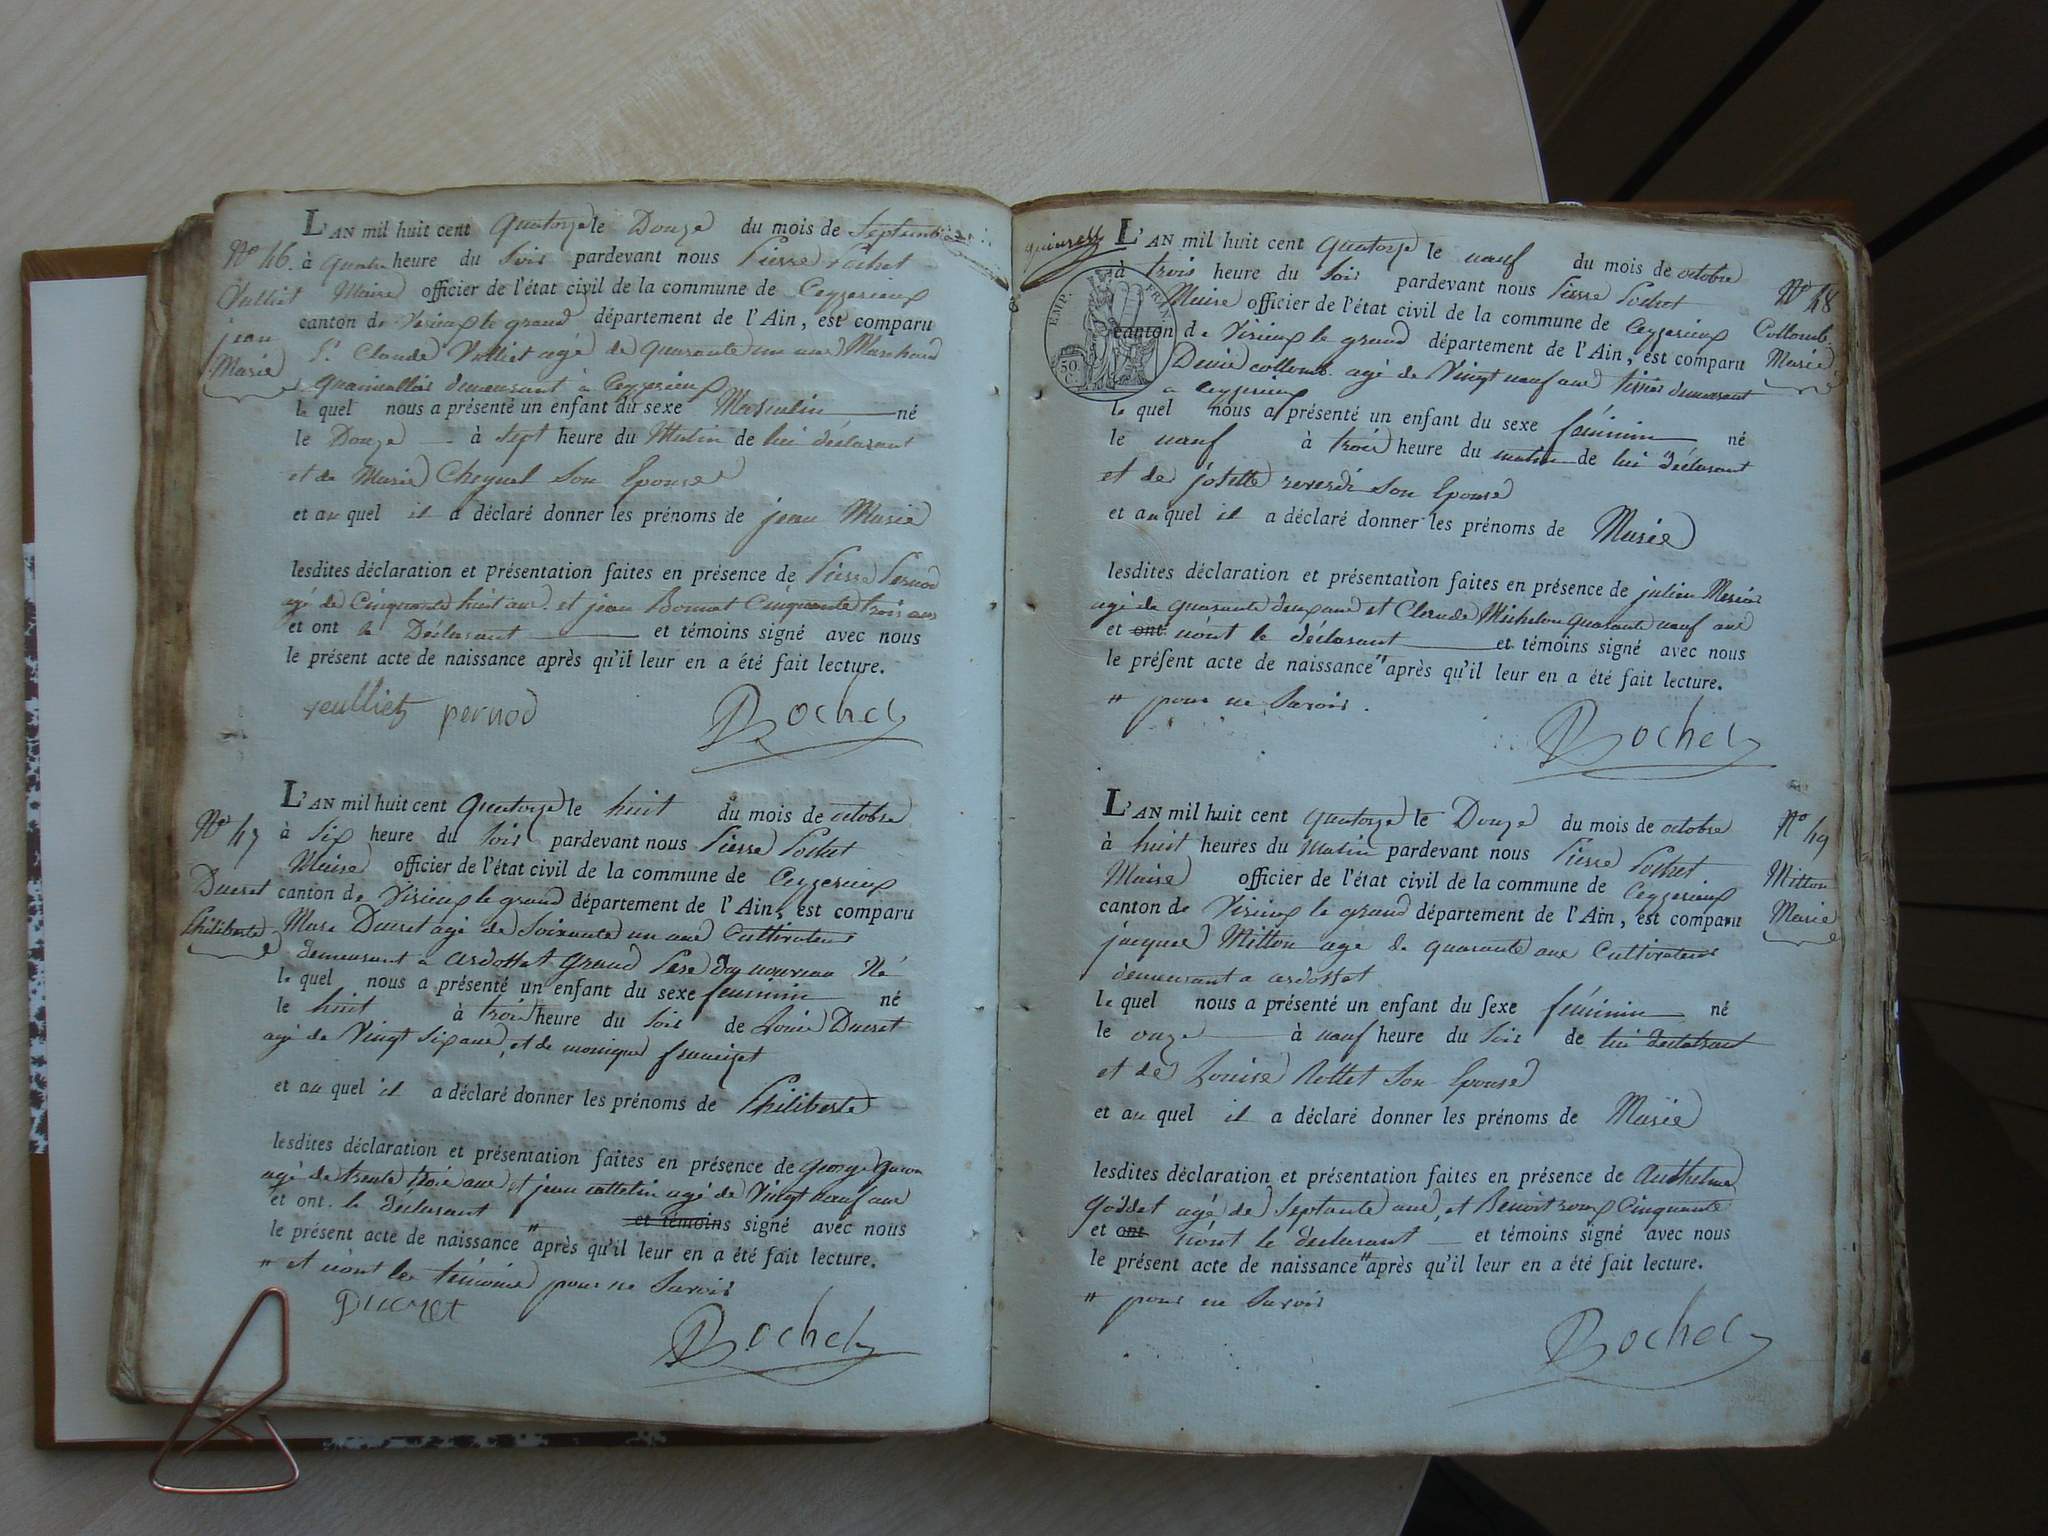 L'AN mil huit cent quatorze le Douze du mois de Septembre
N° 46. à quatre heure du Soir pardevant nous Pierre Pochet
Vulliet Maire officier de l'état civil de la commune de Ceyzerieux
jean canton de Virieux le grand département de l'Ain, est comparu
Marie Sr. Claude Vulliet agé de quarante un ans Marchand
quincallier demeurant à Ceyzerieux
le quel nous a présenté un enfant du sexe Masculin né
le Douze à sept heure du Matin de lui déclarant
et de Marie Cheynel Son Epouse
et au quel il a déclaré donner les prénoms de jean Marie
lesdites déclaration et présentation faites en présence de Pierre Pernod
agé de Cinquante huit ans et jean Bonnat Cinquante trois ans
et ont le Déclarant et témoins signé avec nous
le présent acte de naissance après qu'il leur en a été fait lecture.
veulliet pernod Pochet
L'AN mil huit cent quatorze le huit du mois de octobre
N° 47 à Six heure du Soir pardevant nous Pierre Pochet
Maire officier de l'état civil de la commune de Ceyzerieux
Ducret canton de Virieux le grand département de l'Ain, est comparu
Philiberte Marc Ducret agé de Soixante un ans Cultivateur
demeurant a ardosset grand Pere du nouveau Né
le quel nous a présenté un enfant du sexe feminin né
le huit à trois heure du Soir de Louis Ducret
agé de Vingt Six ans, et de monique francizet
et au quel il a déclaré donner les prénoms de Philiberte
lesdites déclaration et présentation faites en présence de George
agé de trente trois ans et jean cattelin agé de Vingt neuf ans
et ont le déclarant et témoins signé avec nous
le présent acte de naissance " après qu'il leur en a été fait lecture.
" et n'ont les témoins pour ne Savoir
Ducret
Pochet
L'AN mil huit cent quatorze le neuf du mois de octobre
EMP. FRAN.
50 C.
à trois heure du Soir pardevant nous Pierre Pochet N° 48
Maire officier de l'état civil de la commune de Ceyzerieux Collomb
canton de Virieux le grand département de l'Ain, est comparu Marie
Denis collomb agé de Vingt neuf ans demeurant
a ceyzerieux
le quel nous a présenté un enfant du sexe féminin né
le neuf à trois heure du matin de lui déclarant
et de josette reverdi Son Epouse
et au quel il a déclaré donner les prénoms de Marie
lesdites déclaration et présentation faites en présence de julien
agé de quarante deux ans et Claude Michelon quarante neuf ans
et ont n'ont le déclarant et témoins signé avec nous
le présent acte de naissance " après qu'il leur en a été fait lecture.
" pour ne Savoir.
Pochet
L'AN mil huit cent quatorze le Douze du mois de octobre N° 49
à huit heures du Matin pardevant nous Pierre Pochet
Maire officier de l'état civil de la commune de Ceyzerieux Mitton
canton de Virieux le grand département de l'Ain, est comparu Marie
jacques Mitton agé de quarante ans Cultivateur
demeurant a ardosset
le quel nous a présenté un enfant du sexe féminin né
le onze à neuf heure du Soir de lui déclarant
et de Louise Son Epouse
et au quel il a déclaré donner les prénoms de Marie
lesdites déclaration et présentation faites en présence de Anthelme
goddet agé de Septante ans, et Benoit Cinquante
et ont n'ont le déclarant et témoins signé avec nous
le présent acte de naissance " après qu'il leur en a été fait lecture.
" pour ne Savoir
Pochet